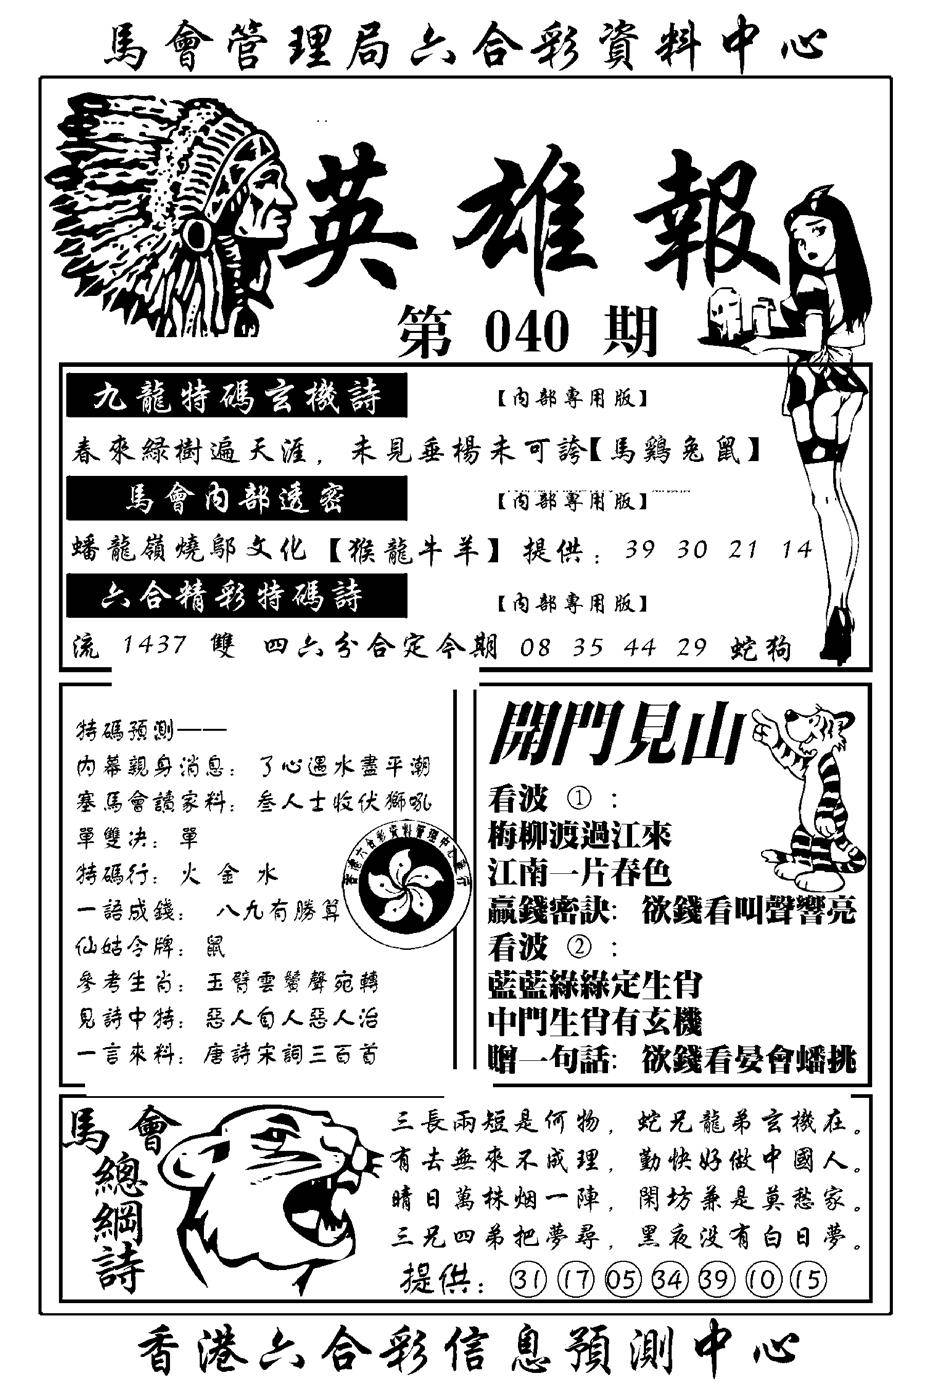 馬會管理局六合彩資料中心
英雄報
第 040 期
九龍特碼玄機詩 【內部專用版】
春來緑樹遍天涯，未見垂楊未可誇【馬鷄兔鼠】
馬會內部透密 【內部專用版】
蟠龍嶺燒鄔文化【猴龍牛羊】提供：39 30 21 14
六合精彩特碼詩 【內部專用版】
流 1437 雙 四六分合定今期 08 35 44 29 蛇狗
特碼預測——
內幕親身消息：了心遇水盡平潮
塞馬會讀家料：叁人士收伏獅吼
單雙决：單
特碼行：火 金 水
一語成錢： 八九有勝算
仙姑令牌：鼠
參考生肖：玉臂雲鬢聲宛轉
見詩中特：惡人自人惡人治
一言來料：唐詩宋詞三百首
香港六合彩資料管理中心發行
開門見山
看波 ①：
梅柳渡過江來
江南一片春色
贏錢密訣：欲錢看叫聲響亮
看波 ②：
藍藍綠綠定生肖
中門生肖有玄機
贈一句話：欲錢看宴會蟠挑
馬會
總綱詩
三長兩短是何物，蛇兄龍弟玄機在。
有去無來不成理，勤快好做中國人。
晴日萬株烟一陣，閑坊兼是莫愁家。
三兄四弟把夢尋，黑夜没有白日夢。
提供：㉛ ⑰ 05 ㉞ ㊴ ⑩ ⑮
香港六合彩信息預測中心